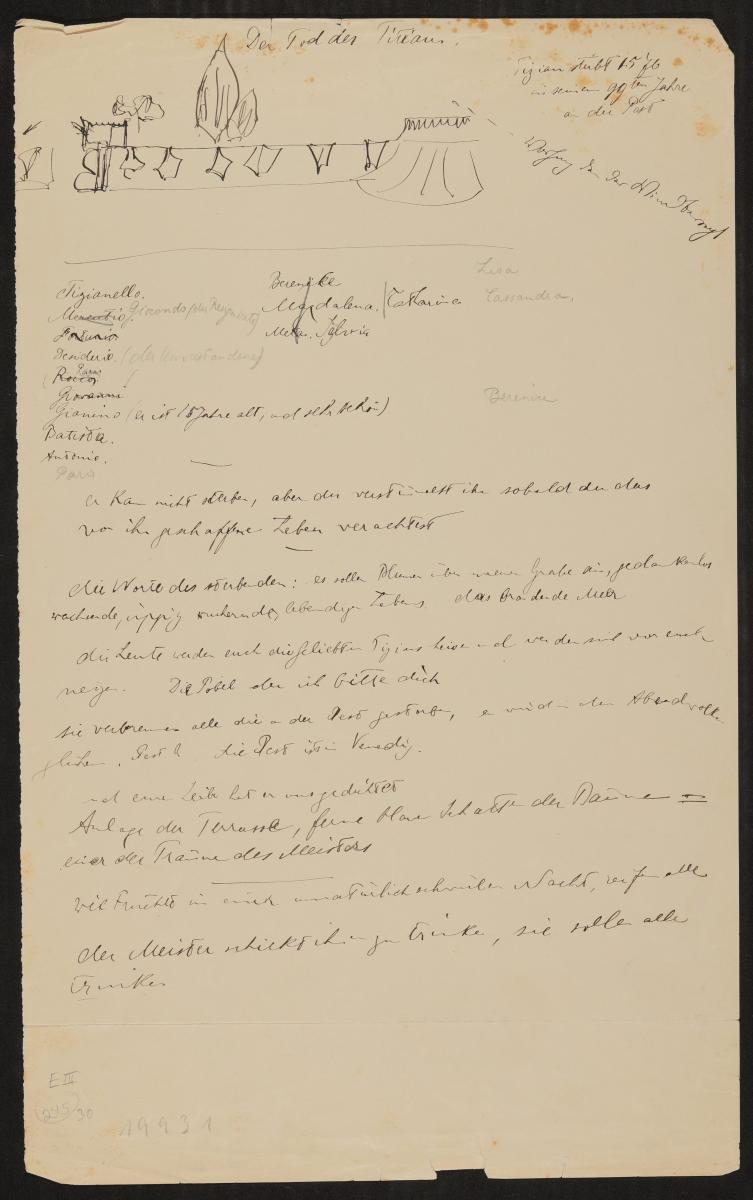 Der Tod des Tizian.
Tizian stirbt 1576
in seinem 99ten Jahre
an der Pest
Tizianello.
Mercutio. Giocondo
Fortunio
Desiderio. (der Unverstandene)
Rocco Paris
Giovanni
Gianino (er ist 16 Jahre alt, und sehr schön)
Batista.
Antonio.
Paris
Berenice
Magdalena. Catharina
Meta. Sylvia
Lisa
Cassandra.
Berenice
er kann nicht sterben, aber du verstümmelst ihn sobald du das
von ihm geschaffene Leben verachtest
die Worte des sterbenden: es sollen Blumen über meinem Grabe sein, gedankenlos
wachsende, üppig wuchernde, lebendigen Lebens. das brandende Meer
die Leute werden euch die Geliebten Tizians heissen und werden sich vor euch
neigen. Der Pöbel aber ich bitte dich
sie verbrennen alle die an der Pest gestorben, er wird in den Abendwolken
glühen. Pest? die Pest ist in Venedig.
und eure Leiber hat er uns gedichtet
Anlage der Terrasse, ferne blaue Schatten der Bäume =
einer der Träume des Meisters
wie Früchte in einer unnatürlich schwülen Nacht, reifen alle
der Meister schickt ihnen zu trinken, sie sollen alle
trinken
E III
245 30
19931